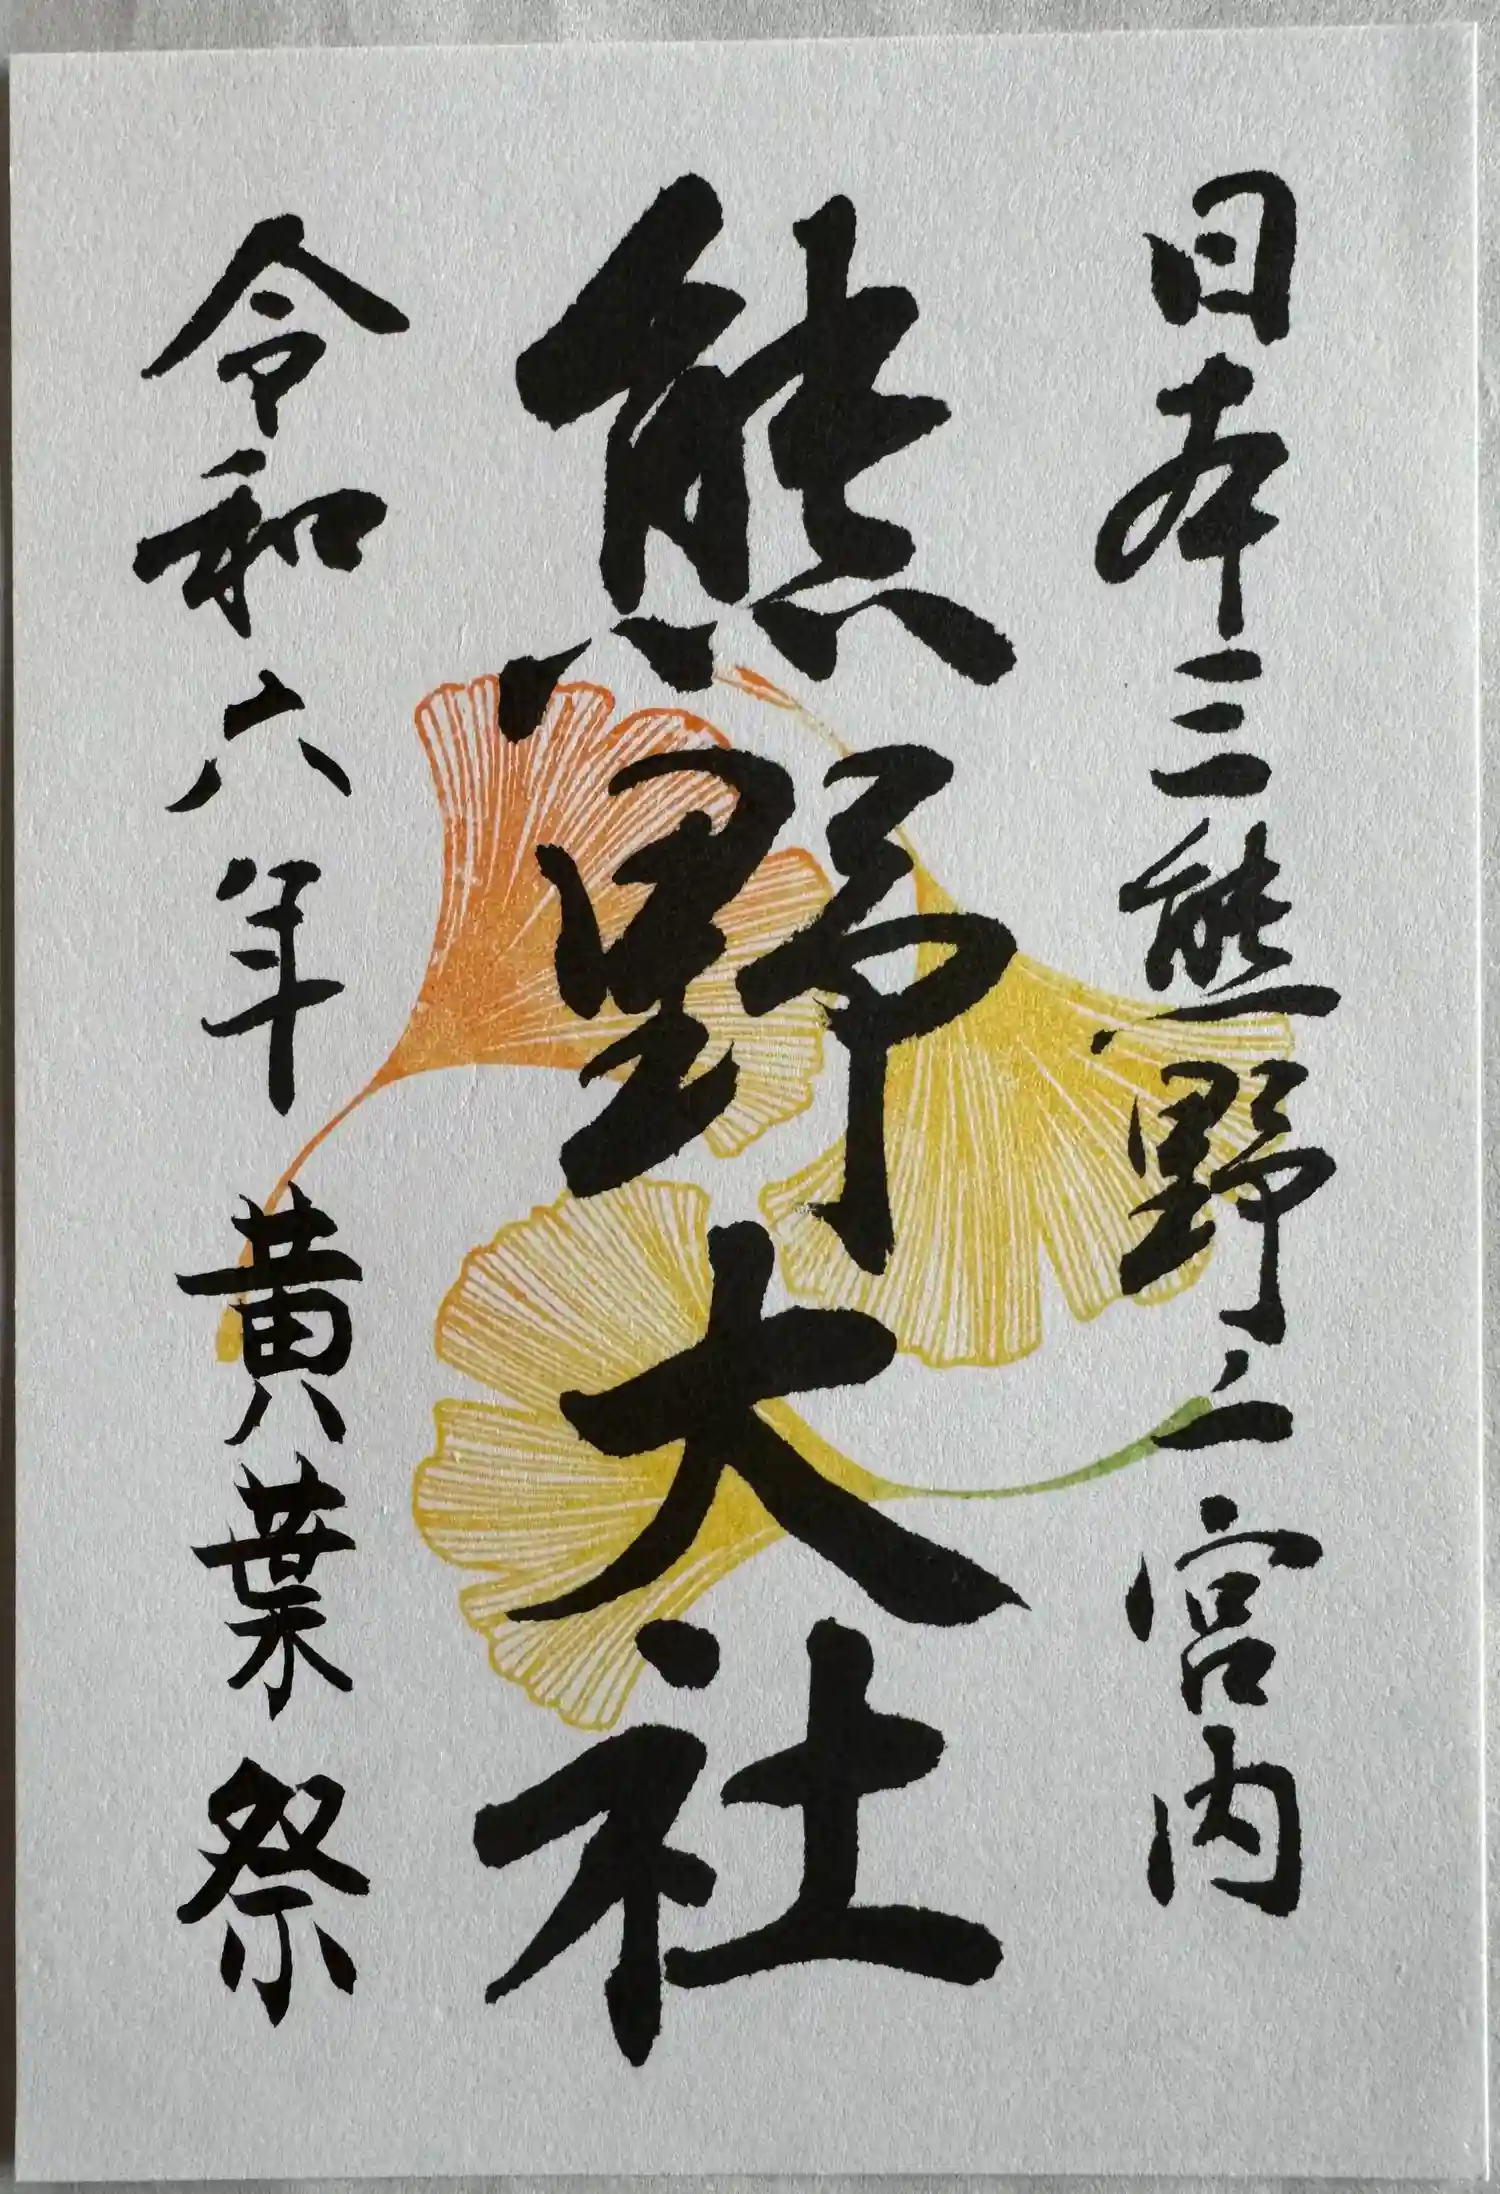 日本三熊野之一宮内
熊野大社
令和六年 黄葉祭